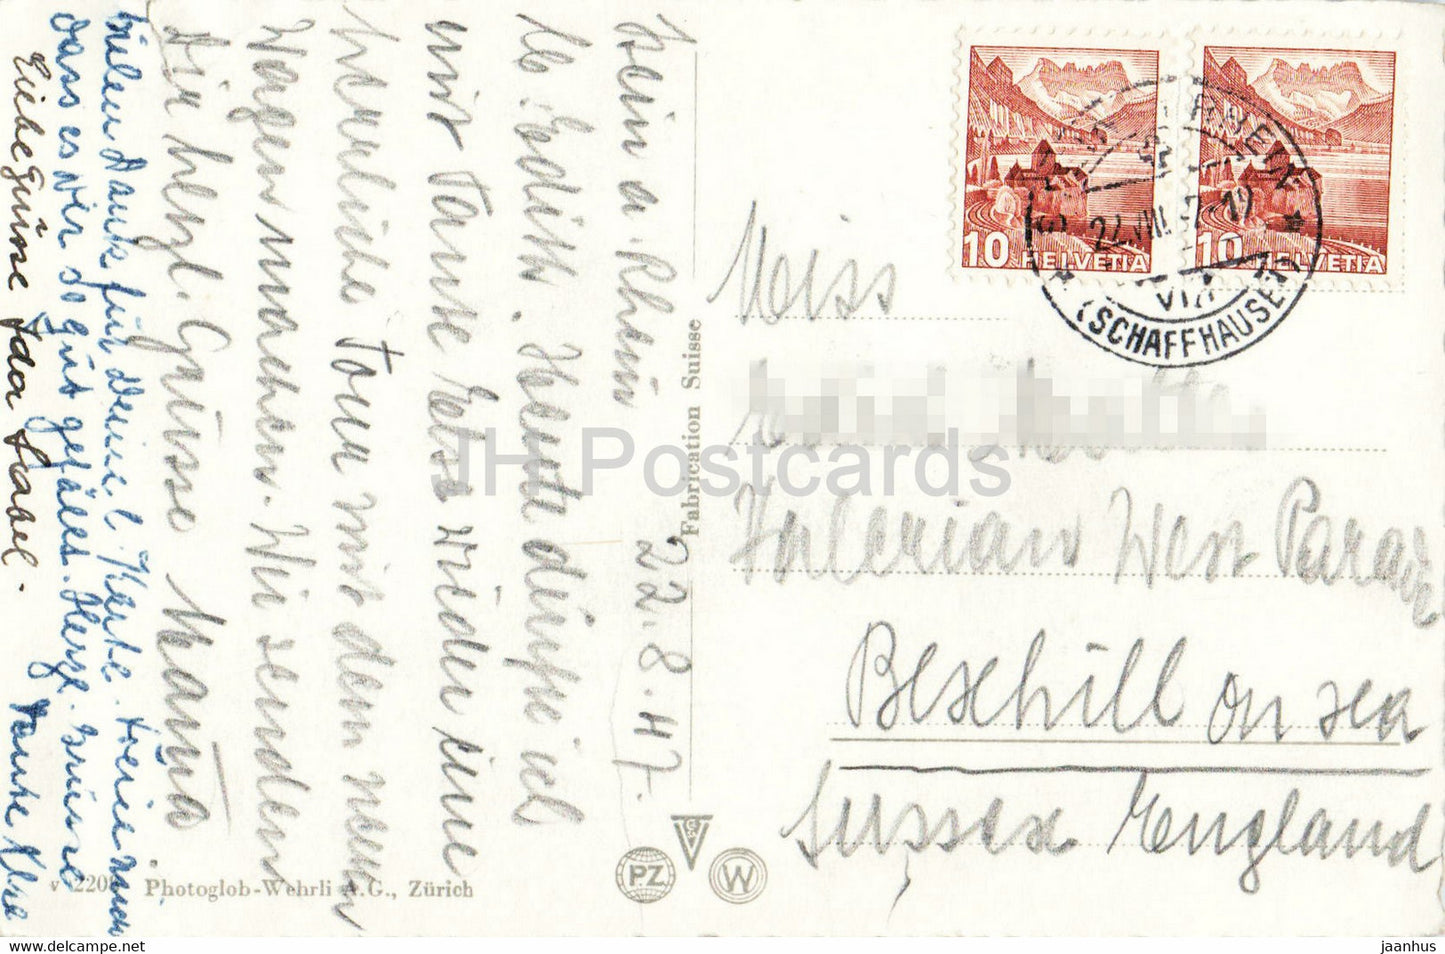 Stein a. Rhein 22.8.47.
Lb. Edith. Heute dürfte ich
mit Tante Elsa wieder eine
herrliche Tour mit dem neuen
Wagen machen. Wir senden
Dir herzl. Grüsse Mama
Vielen Dank für Deine l. Karte. Freue mich
dass es Dir so gut gefällt. Herzl. Grüsse
Tante Elsa
Liebe Grüsse Ida
Fabrication Suisse
v 220
Photoglob-Wehrli A.G., Zürich
PZ
W
10 HELVETIA
10 HELVETIA
22.VIII.47-19
(SCHAFFHAUSEN)
Miss
West Parade
Bexhill on sea
Sussex England
JH Postcards
www.hippostcard.com
jaanhus